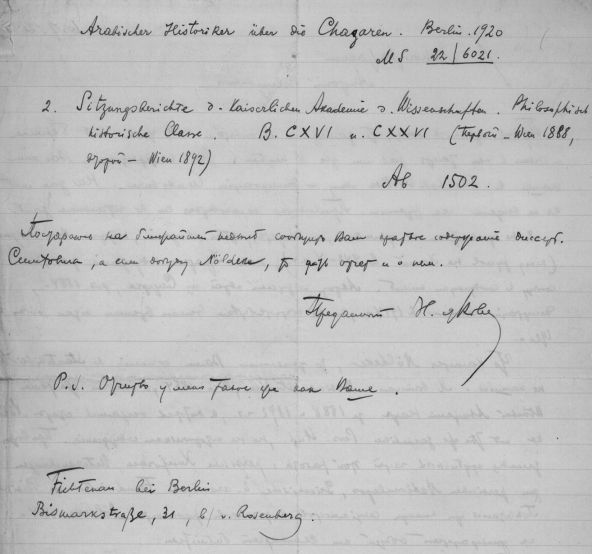 Arabischer Historiker über die Chazaren. Berlin 1920
MS 22/6021.
2. Sitzungsberichte d. Kaiserlichen Akademie d. Wissenschaften. Philosophisch
historische Classe. B. CXVI и. CXXVI (Первой – Wien 1888,
второй – Wien 1892)
Ab 1502.
Постараюсь на ближайшей неделе сообщить Вам краткое содержание диссерт.
а если Nöldeke, то дать отчет и о нем.
Преданный Н.
P.S. у меня такое же как Ваше.
Fichtenau bei Berlin
Bismarkstraße, 31, b/ v. Rosenberg.